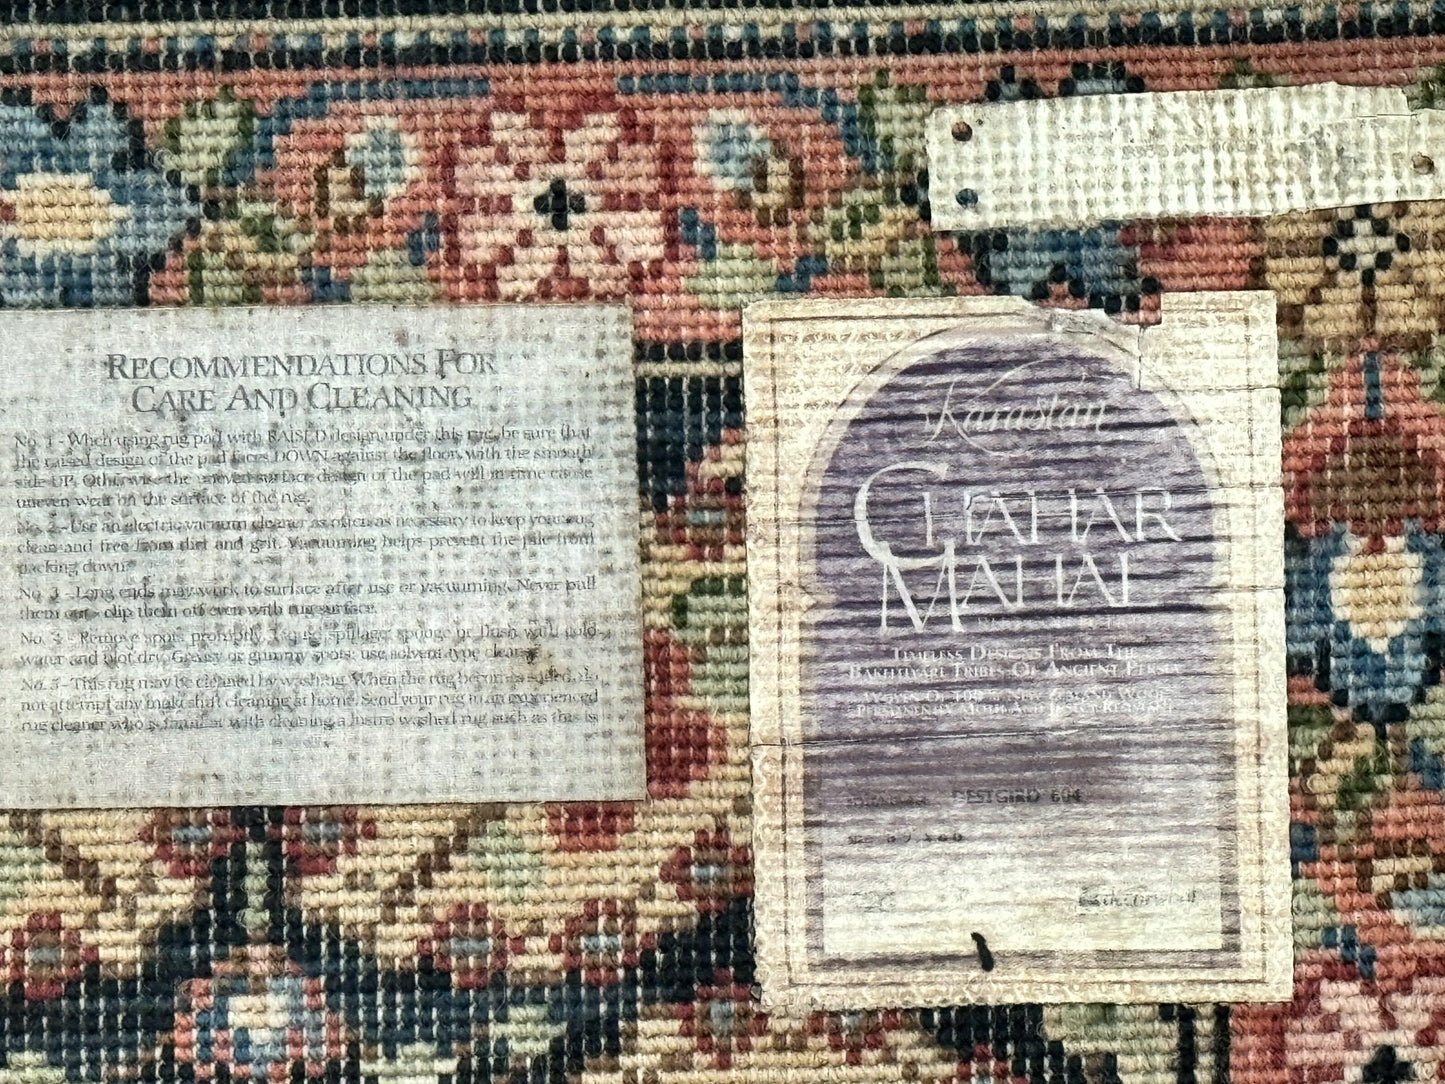 RECOMMENDATIONS FOR
CARE AND CLEANING
No. 1 - When using rug pad with RAISED design under this rug, be sure that
the raised design of the pad faces DOWN against the floor, with the smooth
side UP. Otherwise the uneven surface design of the pad will in time cause
uneven wear on the surface of the rug.
No. 2 - Use an electric vacuum cleaner as often as necessary to keep your rug
clean and free from dirt and grit. Vacuuming helps prevent the pile from
packing down.
No. 3 - Long ends may work to surface after use or vacuuming. Never pull
them out - clip them off even with rug surface.
No. 4 - Remove spots promptly. Liquid spillage: sponge or flush with cold
water and blot dry. Greasy or gummy spots: use solvent type cleaner.
No. 5 - This rug may be cleaned by washing. When the rug becomes soiled, do
not attempt any make shift cleaning at home. Send your rug to an experienced
rug cleaner who is familiar with cleaning a lustre washed rug such as this is
Karastan
CHAHAR
MAHAL
TIMELESS DESIGNS FROM THE
BAKHTIYARI TRIBES OF ANCIENT PERSIA
WOVEN OF 100% NEW ZEALAND WOOL
PERMANENTLY MOTH AND INSECT RESISTANT
DESTGIRD 604